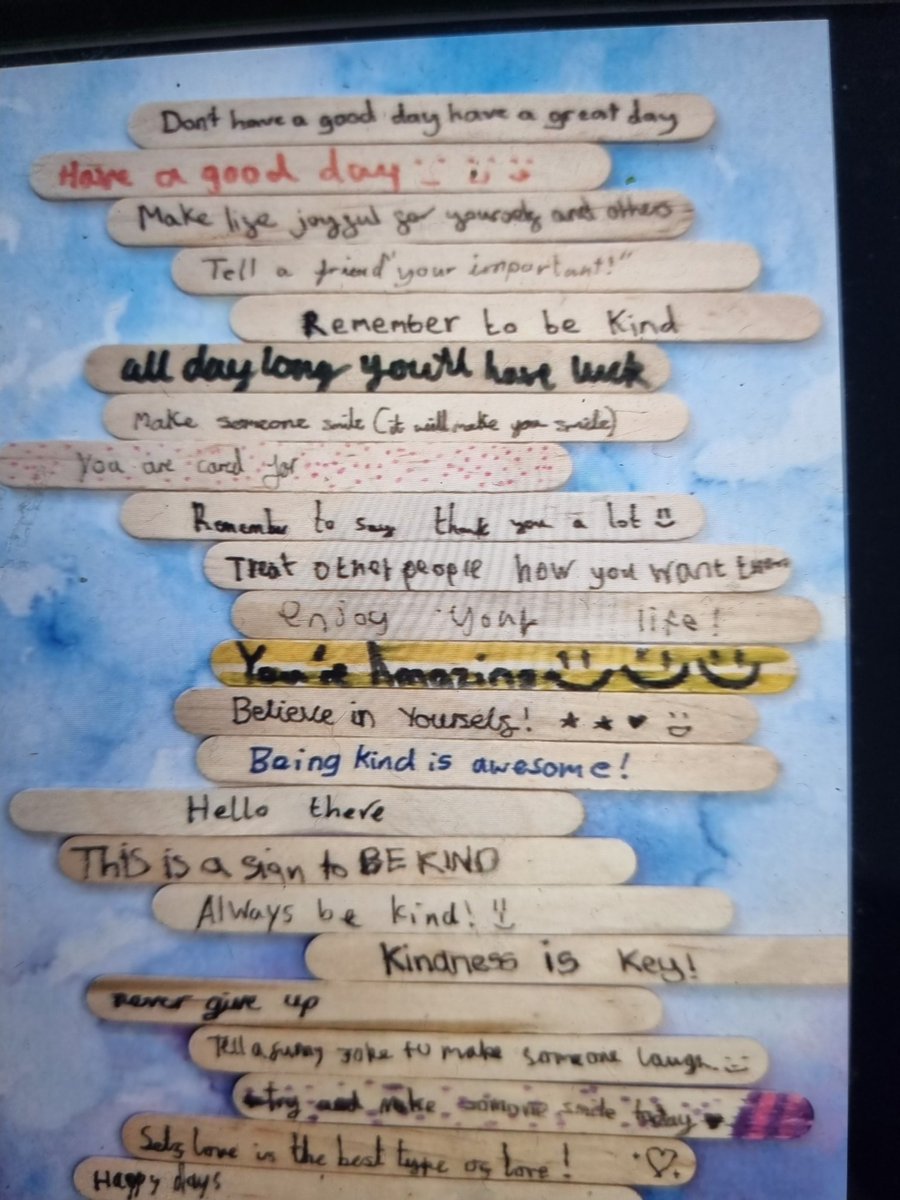 Don't have a good day have a great day
Have a good day
Make life joyful for yourself and others
Tell a friend "your important!"
Remember to be Kind
all day long you'll have luck
Make someone smile (it will make you smile)
You are cared for
Remember to say thank you a lot
Treat other people how you want
enjoy your life!
You're Amazing
Believe in Yourself!
Being kind is awesome!
Hello there
This is a sign to BE KIND
Always be kind!
Kindness is Key!
never give up
Tell a funny joke to make someone laugh
try and make someone smile today
Self love is the best type of love!
Happy days